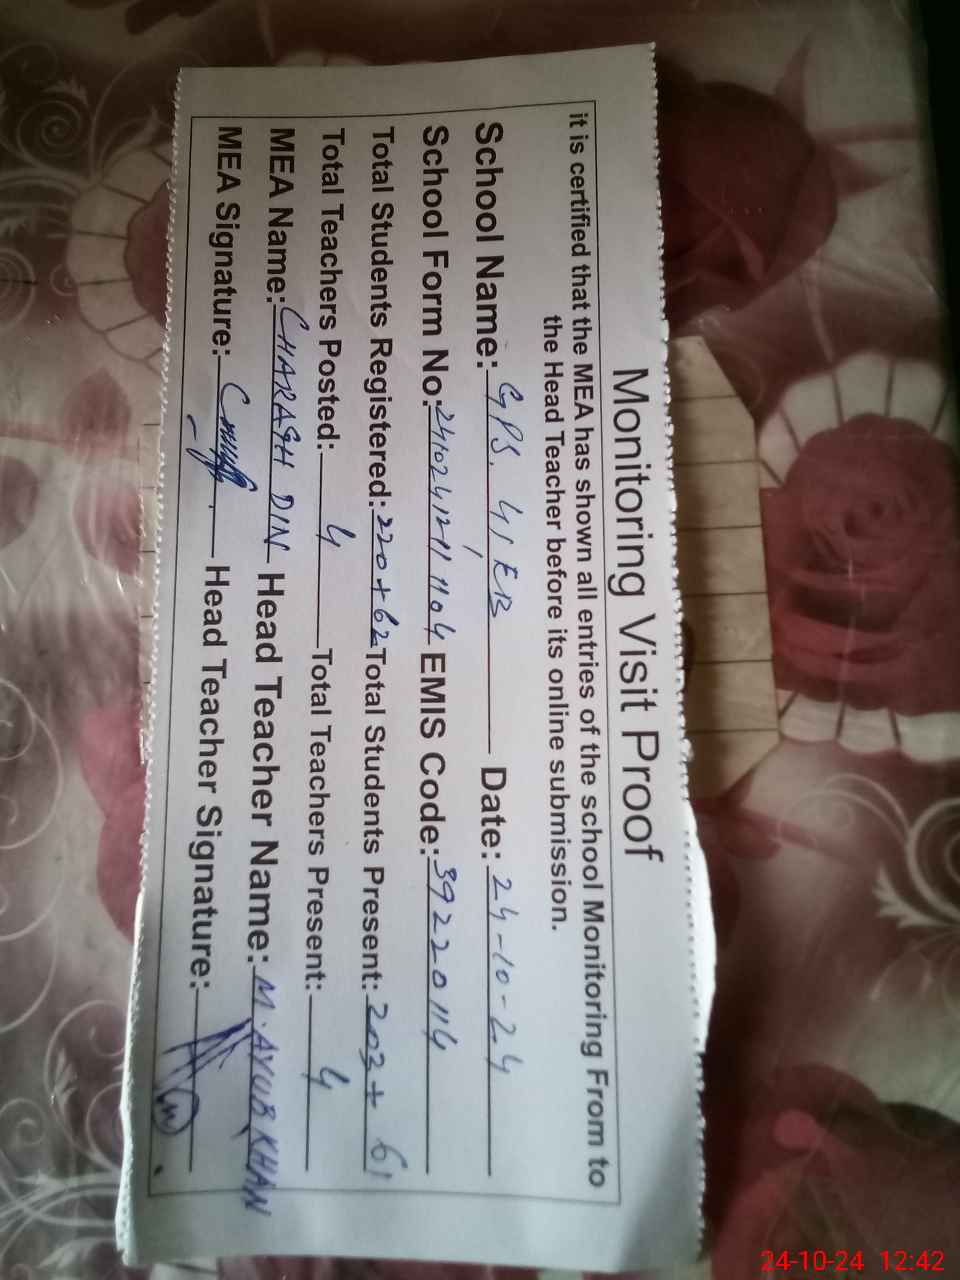 Monitoring Visit Proof
it is certified that the MEA has shown all entries of the school Monitoring From to
the Head Teacher before its online submission.
School Name: GPS. 41/EB Date: 24-10-24
School Form No: 241024121104 EMIS Code: 39220114
Total Students Registered: 220+62 Total Students Present: 203+61
Total Teachers Posted: 4 Total Teachers Present: 4
MEA Name: CHARAGH DIN Head Teacher Name: M. AYUB KHAN
MEA Signature: Head Teacher Signature:
24-10-24 12:42